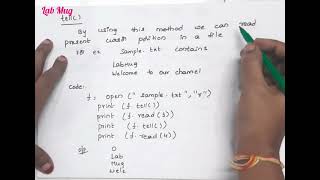 Lab Mug
tell()
By using this method we can read
present cursor position in a file
ex sample.txt contains
LabMug
Welcome to our channel
Code:
f = open ("sample.txt", "r")
print (f.tell())
print (f.read(3))
print (f.tell())
print (f.read(4))
o/p: 0
Lab
Mug
Welc